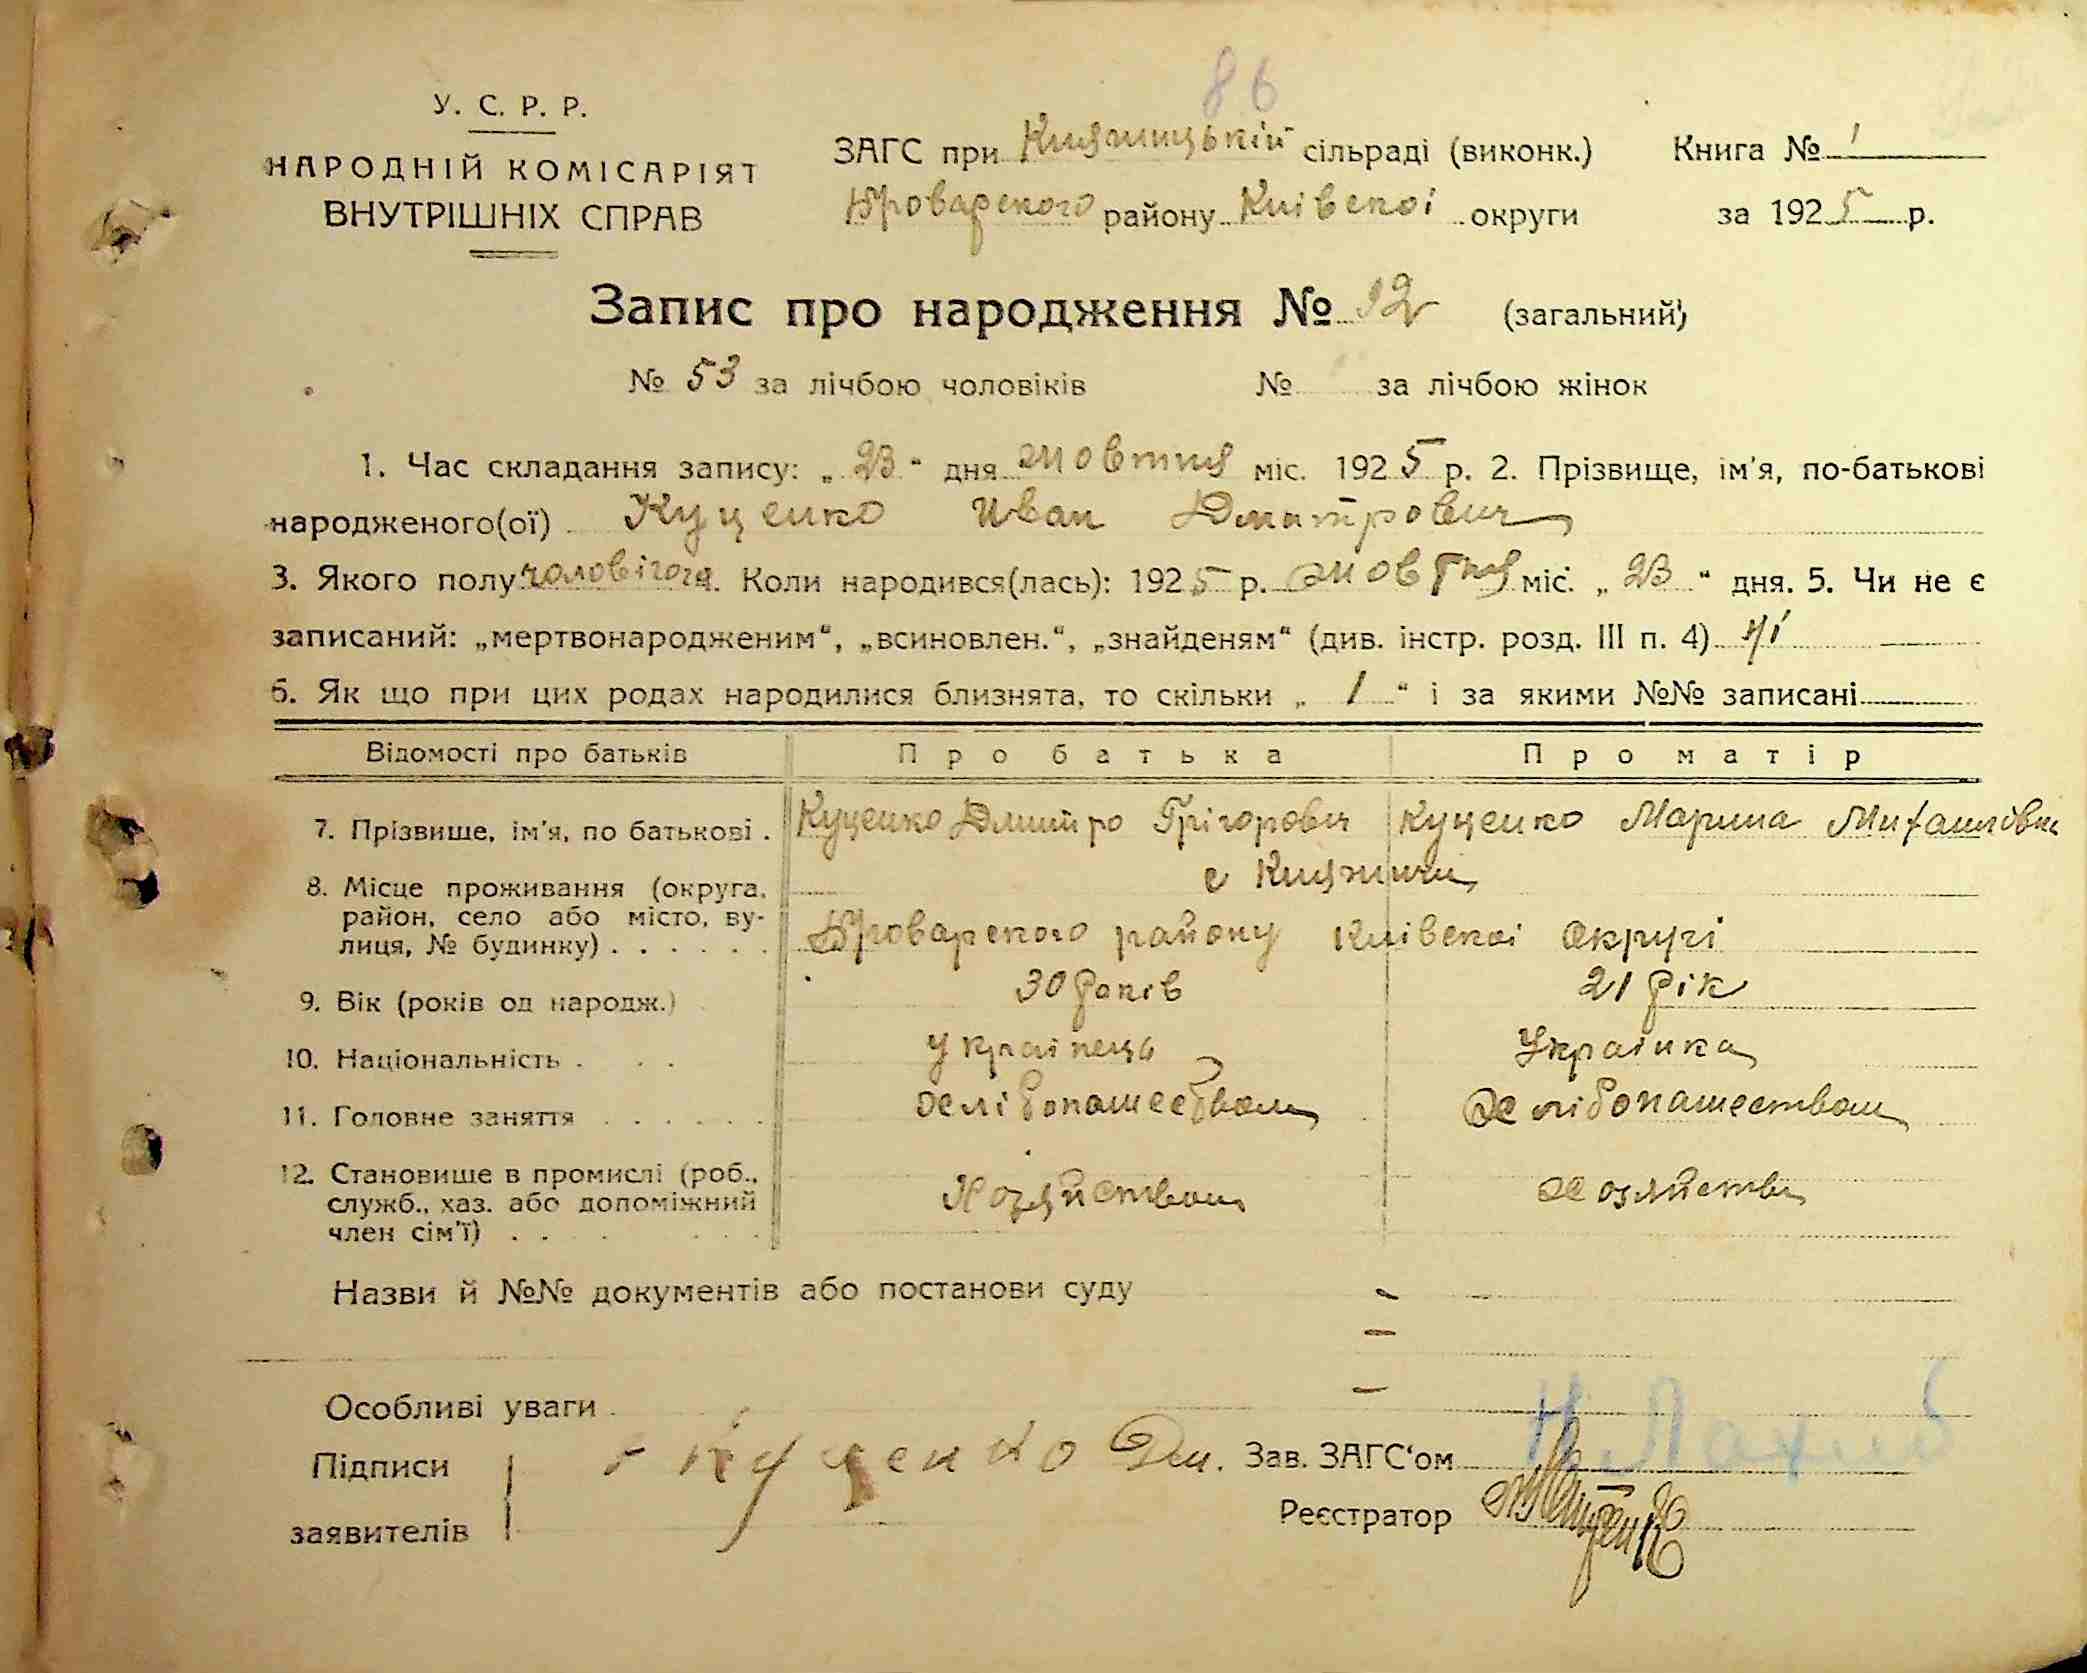 86
У. С. Р. Р.
НАРОДНІЙ КОМІСАРІЯТ
ВНУТРІШНІХ СПРАВ
ЗАГС при Княжицькій сільраді (виконк.) Книга № 1
Броварского району Київскої округи за 1925 р.
Запис про народження № 92 (загальний)
№ 53 за лічбою чоловіків № за лічбою жінок
1. Час складання запису: „23“ дня жовтня міс. 1925 р. 2. Прізвище, ім'я, по-батькові
народженого(ої) Куценко Иван Дмитрович
3. Якого полу чоловічого. Коли народився(лась): 1925 р. жовтня міс. „23“ дня. 5. Чи не є
записаний: „мертвонародженим“, „всиновлен.“, „знайденям“ (див. інстр. розд. III п. 4) ні
6. Як що при цих родах народилися близнята, то скільки „1“ і за якими №№ записані
Відомості про батьків Про батька Про матір
7. Прізвище, ім'я, по батькові . Куценко Дмитро Грігорович Куценко Марина Михайлівна
8. Місце проживання (округа, с Княжичи
район, село або місто, ву-
лиця, № будинку) . . . . . . Броварского району Київскої округі
9. Вік (років од народж.) 30 років 21 рік
10. Національність . . . українець Українка
11. Головне заняття . . . . . . хлібопашеством хлібопашеством
12. Становище в промислі (роб.,
служб., хаз. або допоміжний Хозяйством хозяйству
член сім'ї) . .
Назви й №№ документів або постанови суду –
–
Особливі уваги . –
Підписи Куценко Дм. Зав. ЗАГС'ом
заявителів Реєстратор